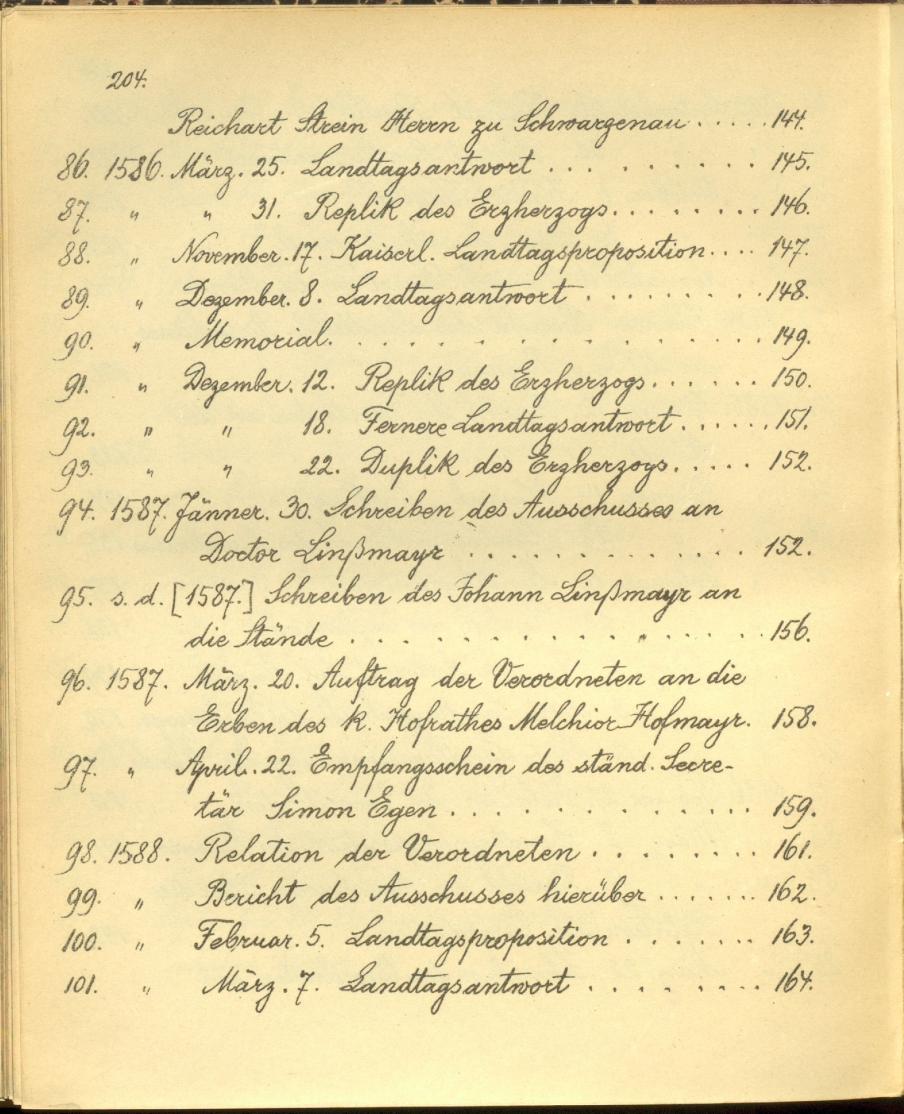 204.
Reichart Strein Herrn zu Schwarzenau ..... 144.
86. 1586. März. 25. Landtagsantwort .......... 145.
87. " " 31. Replik des Erzherzogs........ 146.
88. " November. 17. Kaiserl. Landtagsproposition.... 147.
89. " Dezember. 8. Landtagsantwort ........ 148.
90. " Memorial. ................ 149.
91. " Dezember. 12. Replik des Erzherzogs...... 150.
92. " " 18. Fernere Landtagsantwort ...... 151.
93. " " 22. Duplik des Erzherzogs..... 152.
94. 1587. Jänner. 30. Schreiben des Ausschusses an
Doctor Linßmayr ............. 152.
95. s. d. [1587.] Schreiben des Johann Linßmayr an
die Stände .................. 156.
96. 1587. März. 20. Auftrag der Verordneten an die
Erben des k. Hofrathes Melchior Hofmayr. 158.
97. " April. 22. Empfangsschein des ständ. Secre-
tär Simon Egen ............. 159.
98. 1588. Relation der Verordneten ........ 161.
99. " Bericht des Ausschusses hierüber ....... 162.
100. " Februar. 5. Landtagsproposition ....... 163.
101. " März. 7. Landtagsantwort ......... 164.